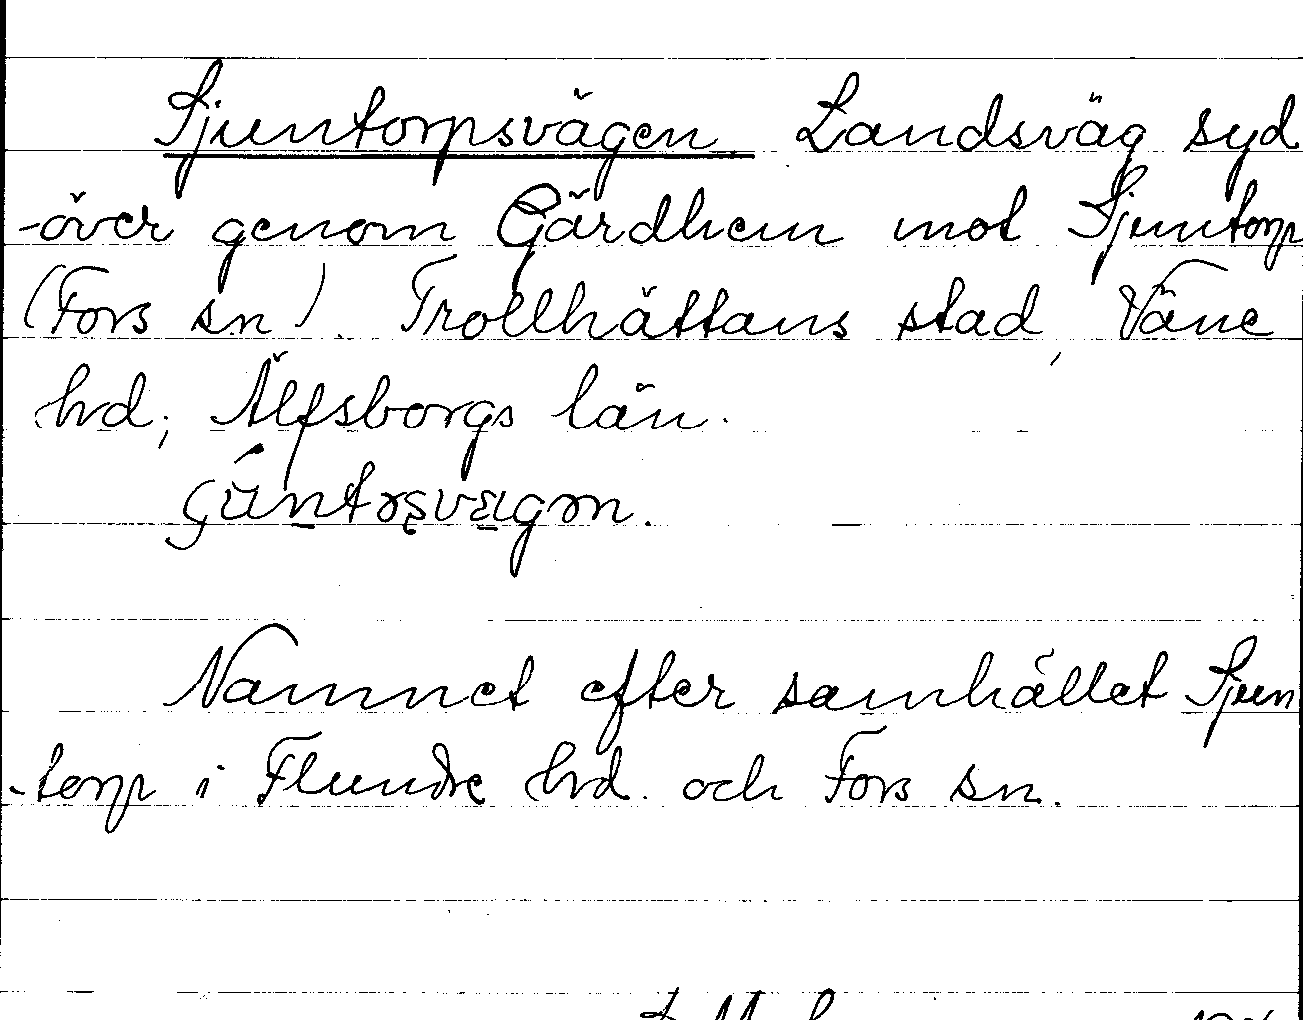 Sjuntorpsvägen. Landsväg syd
-över genom Gärdhem mot Sjuntorp
(Fors sn). Trollhättans stad, Väne
hd; Älfsborgs län.
Namnet efter samhället Sjun
-torp i Flundre hd. och Fors sn.